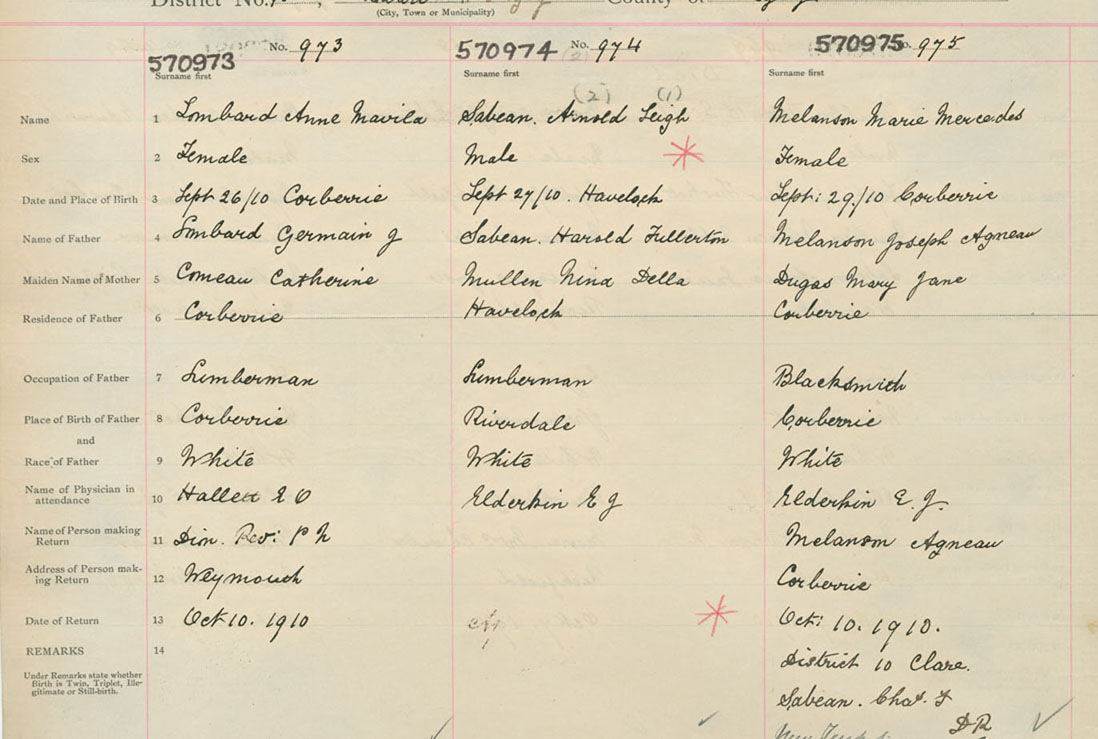 District No.
County of
(City, Town or Municipality)
570973 No. 973
570974 No. 974
570975 No. 975
Surname first Surname first Surname first
(2) (1)
Name 1 Lombard Anne Mavila Sabean. Arnold Leigh Melanson Marie Mercedes
Sex 2 Female Male Female
Date and Place of Birth 3 Sept 26/10 Corberrie Sept 27/10. Havelock Sept: 29/10 Corberrie
Name of Father 4 Lombard Germain J Sabean. Harold Fullerton Melanson Joseph Agneau
Maiden Name of Mother 5 Comeau Catherine Mullen Nina Della Dugas Mary Jane
Residence of Father 6 Corberrie Havelock Corberrie
Occupation of Father 7 Lumberman Lumberman Blacksmith
Place of Birth of Father 8 Corberrie Riverdale Corberrie
and
Race of Father 9 White White White
Name of Physician in
attendance 10 Hallett E O Elderkin E J Elderkin E. J.
Name of Person making
Return 11 Rev: P Melanson Agneau
Address of Person mak-
ing Return 12 Weymouth Corberrie
Date of Return 13 Oct 10. 1910 Oct: 10. 1910.
REMARKS 14 District 10 Clare.
Under Remarks state whether
Birth is Twin, Triplet, Ille-
gitimate or Still-birth.
Sabean. Chas. F
DR